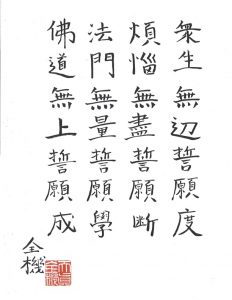 衆生無辺誓願度
煩惱無盡誓願断
法門無量誓願學
佛道無上誓願成
全機